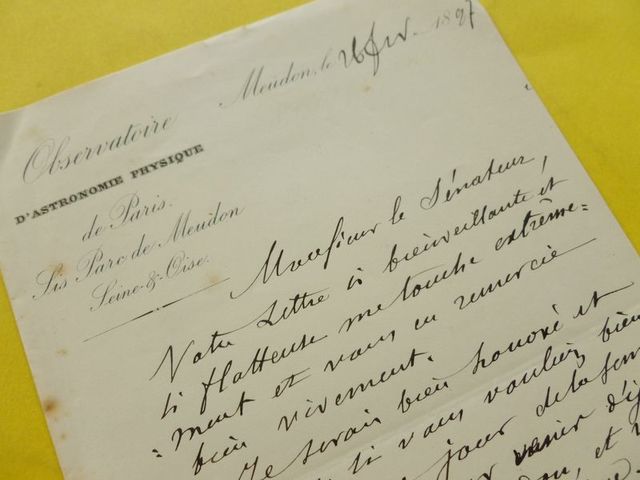 Meudon, le 26 fev. 1897
Observatoire
D'ASTRONOMIE PHYSIQUE
de Paris.
Sis Parc de Meudon
Seine-&-Oise.
Monsieur le Sénateur,
Votre lettre si bienveillante et
si flatteuse me touche extrême=
=ment et vous en remercie
bien vivement.
Je serais bien honoré et
si vous vouliez bien
jour de la
venir d'i
don, et